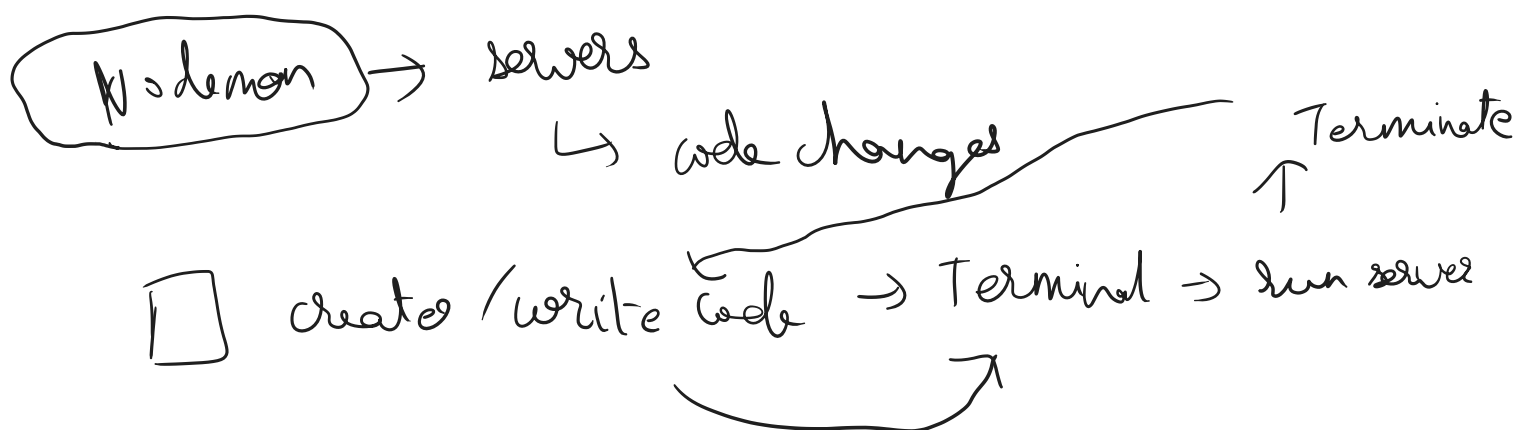 Nodemon → servers
↳ code changes
Terminate
create / write code → Terminal → run server